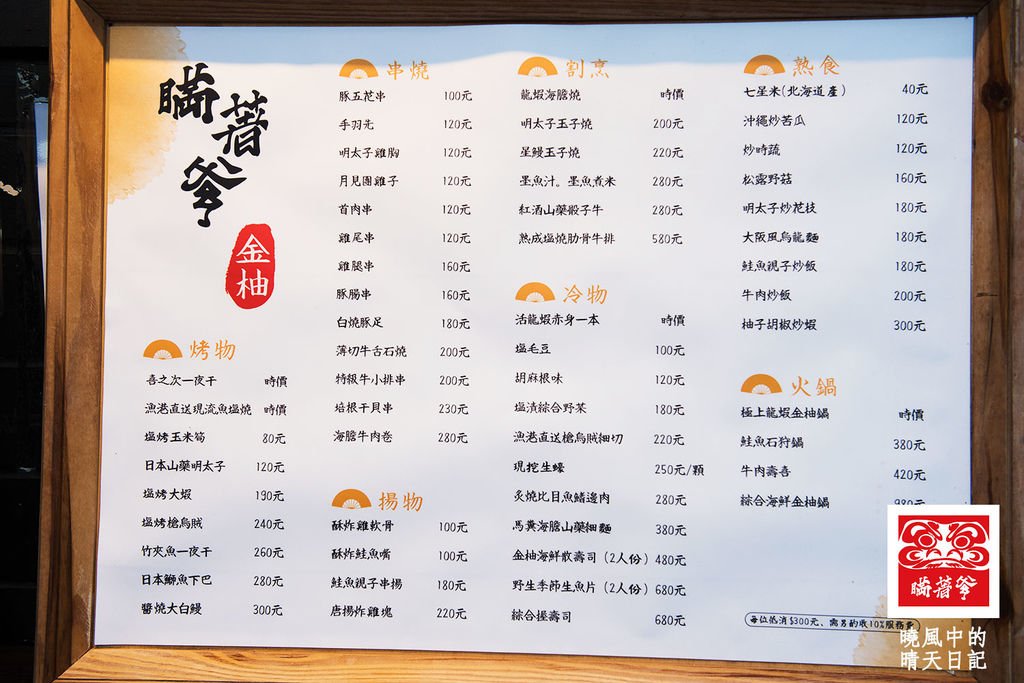 瞞著爹
金柚
烤物
喜之次一夜干 時價
漁港直送現流魚塩燒 時價
塩烤玉米筍 80元
日本山藥明太子 120元
塩烤大蝦 190元
塩烤槍烏賊 240元
竹夾魚一夜干 260元
日本鰤魚下巴 280元
醬燒大白鰻 300元
串燒
豚五花串 100元
手羽先 120元
明太子雞胸 120元
月見團雞子 120元
首肉串 120元
雞尾串 120元
雞腿串 160元
豚腸串 160元
白燒豚足 180元
薄切牛舌石燒 200元
特級牛小排串 200元
培根干貝串 230元
海膽牛肉卷 280元
揚物
酥炸雞軟骨 100元
酥炸鮭魚嘴 100元
鮭魚親子串揚 180元
唐揚炸雞塊 220元
割烹
龍蝦海膽燒 時價
明太子玉子燒 200元
星鰻玉子燒 220元
墨魚汁。墨魚煮米 280元
紅酒山藥骰子牛 280元
熟成塩燒肋骨牛排 580元
冷物
活龍蝦赤身一本 時價
塩毛豆 100元
胡麻根味 120元
塩漬綜合野菜 180元
漁港直送槍烏賊細切 220元
現挖生蠔 250元/顆
炙燒比目魚鰭邊肉 280元
馬糞海膽山藥細麵 380元
金柚海鮮散壽司（2人份）480元
野生季節生魚片（2人份）680元
綜合握壽司 680元
熟食
七星米（北海道產） 40元
沖繩炒苦瓜 120元
炒時蔬 120元
松露野菇 160元
明太子炒花枝 180元
大阪風烏龍麵 180元
鮭魚親子炒飯 180元
牛肉炒飯 200元
柚子胡椒炒蝦 300元
火鍋
極上龍蝦金柚鍋 時價
鮭魚石狩鍋 380元
牛肉壽喜 420元
綜合海鮮金柚鍋
每位低消$300元、需另酌收10%服務費
瞞著爹
曉風中的
晴天日記